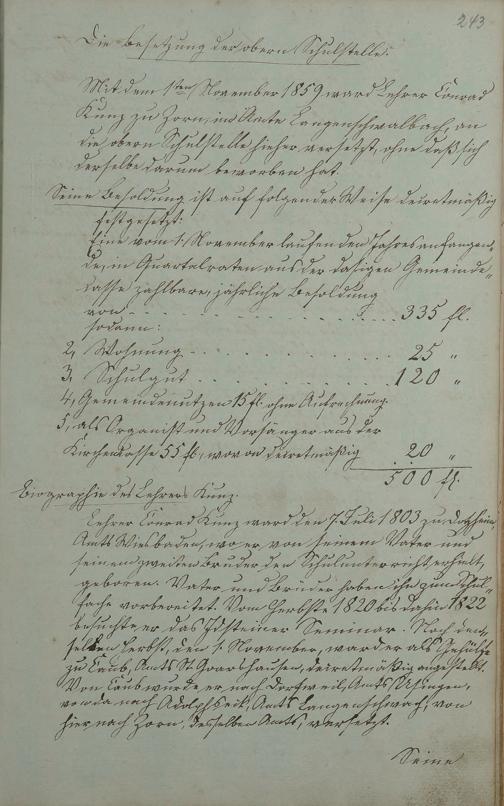 243
Die Besetzung der obern Schulstelle.
Mit dem 1ten November 1859 ward Lehrer Conrad
Kunz zu Zorn, im Amte Langenschwalbach, an
die obern Schulstelle hieher versetzt, ohne daß sich
derselbe darum beworben hat.
Seine Besoldung ist auf folgender Weise decretmäßig
festgesetzt:
Eine vom 1. November laufenden Jahres anfangen-
de, in Quartalraten aus der dasigen Gemeinde-
casse zahlbare, jährliche Besoldung
von 335 fl.
sodann:
2, Wohnung 25 "
3, Schulgut 120 "
4, Gemeindenutzen 15 fl. ohne Aufrechnung.
5, als Organist und Vorsänger aus der
Kirchenkasse 55 fl, wovon decretmäßig 20 "
500 fl.
Biographie des Lehrers Kunz.
Lehrer Conrad Kunz ward den 7. Juli 1803 zu Dotzheim,
Amts Wiesbaden, wo er von seinem Vater und
seinem zweiten Bruder den Schulunterricht erhielt,
geboren. Vater und Bruder haben ihn zum Schul-
fache vorbereitet. Vom Herbste 1820 bis dahin 1822
besuchte er das Idsteiner Seminar. Noch den-
selben Herbst, den 1. November, ward er als Gehülfe
zu Caub, Amts St. Goarshausen, decretmäßig angestellt.
Von Caub wurde er nach Dorfweil, Amts Usingen,
von da nach Adolphseck, Amts Langenschwalbach, von
hier nach Zorn, desselben Amts, versetzt.
Seine